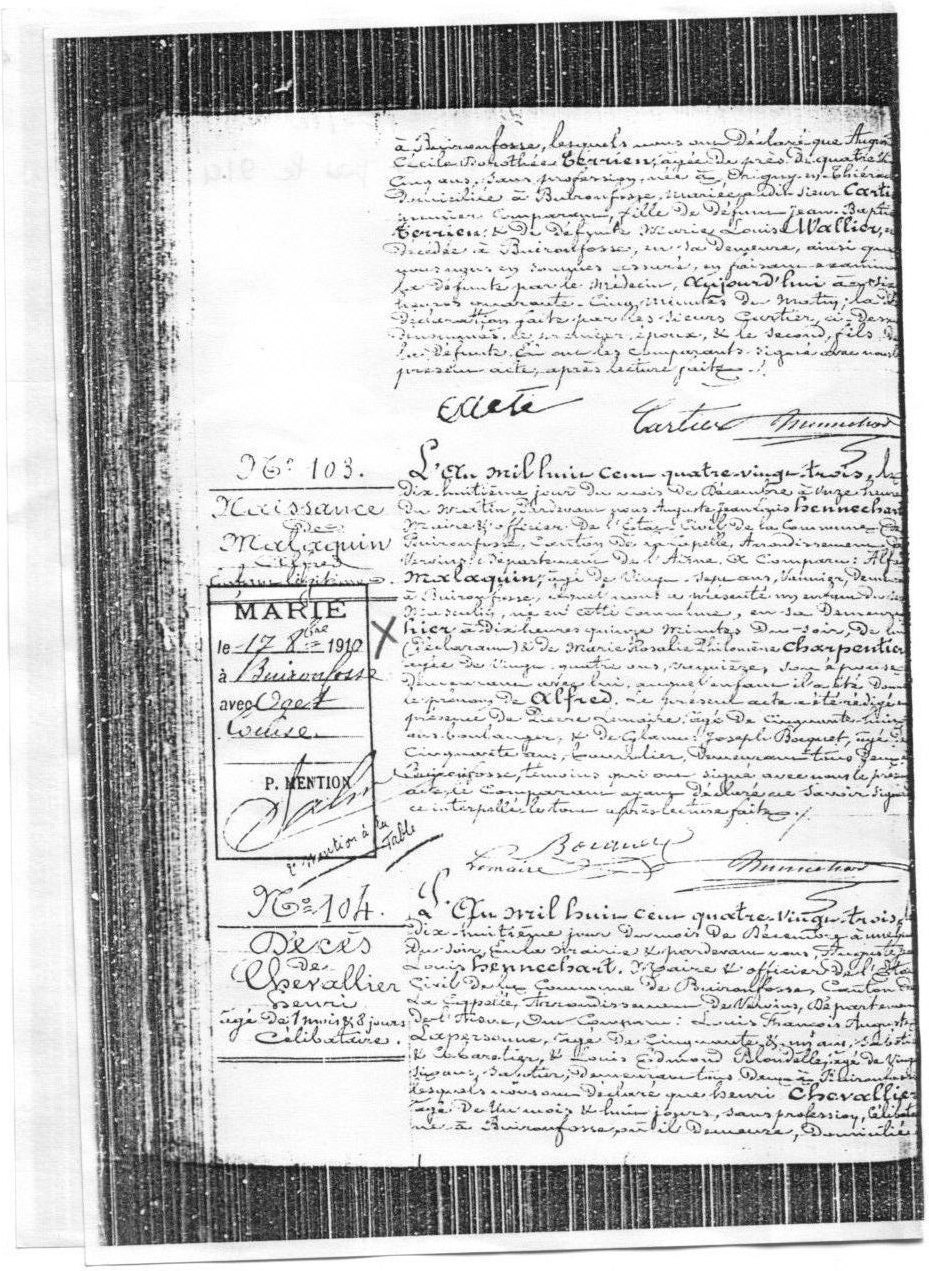 à Buironfosse, lesquels nous ont Déclaré que
Cécile Dorothée Terrien, agée de près de quatre
Cinq ans, sans profession, née à Origny en Thiérache
Domiciliée à Buironfosse, mariée au dit sieur Carti
premier Comparant, fille de Défunt Jean Bapti
Terrien, & de Défunte Marie Louise Wallier,
Décédée à Buironfosse, en sa Demeure, ainsi que
nous nous en sommes assuré, en faisant examiner
la Défunte par le Médecin, Aujourd'hui à
heures quarante-Cinq minutes du matin; la
Déclaration faite par les sieurs Cartier, ci-Dessus
le premier, époux, & le second, fils de
la Défunte. Et ont les Comparants signé avec nous le
présent acte, après lecture faite.
Cartier
Nº 103.
Naissance
de
Malaquin
Alfred
Enfant légitime
MARIÉ
le 17 8bre 1910
à Buironfosse
avec
Louise
P. MENTION
Mention à la
Table
X
L'An mil huit cent quatre-vingt-trois, le
Dix-huitième jour du mois de Décembre à onze heures
du Matin, Pardevant nous Auguste Jean Louis hennechart
Maire & officier De l'Etat Civil De la Commune de
Buironfosse, Canton De La Capelle, Arrondissement de
Vervins, Département De l'Aisne, A Comparu: Alfr
Malaquin, agé de Vingt-sept ans, Vannier, Demeu
à Buironfosse, lequel nous a présenté un enfant du sexe
Masculin, né en cette commune, en sa Demeure
hier à Dix heures quinze Minutes Du soir, De lui
(Déclarant) & de Marie Rosalie Philomène Charpentier
agée de Vingt-quatre ans, son épouse
Demeurant avec lui, auquel enfant il a été Donné
le prénom de Alfred. Le présent acte a été rédigé en
présence De Pierre Lemaire, agé de Cinquante huit
ans, boulanger, & De Joseph Bocquet, agé De
Cinquante ans, Demeurant tous Deux à
Buironfosse, témoins qui ont signé avec nous le présent
acte, le Comparant ayant Déclaré ne savoir signer
ce interpellé, le tout après lecture faite.
Bocquet
Lemaire
Nº 104.
Décès
de
Chevallier
henri
âgé de 1 mois & 8 jours
Célibataire.
L'An mil huit cent quatre-vingt-trois, le
Dix-huitième jour du mois De Décembre, à une heure
Du soir, En la Mairie & pardevant nous, Auguste
Louis hennechart, Maire & officier De l'Etat
Civil De la Commune de Buironfosse, Canton de
La Capelle, Arrondissement De Vervins, Département
De l'Aisne, Ont Comparu: Louis François Auguste
Lapersonne, agé de Cinquante & un ans,
& Cabaretier, & Louis Edmond Blondelle, agé de Vingt
six ans, Sabotier, Demeurant tous Deux à Buironfosse
lesquels nous ont Déclaré que henri Chevallier
agé De Un mois & huit jours, sans profession, Célibata
né à Buironfosse, où il Demeure, Domicilié